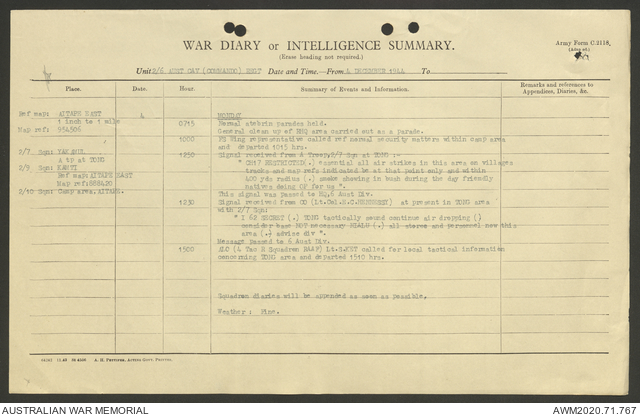 WAR DIARY or INTELLIGENCE SUMMARY.
(Erase heading not required.)
Army Form C.2118.
Unit 2/6 AUST CAV (COMMANDO) REGT Date and Time.—From 4 DECEMBER 1944 To
Place. Date. Hour. Summary of Events and Information. Remarks and references to Appendices, Diaries, &c.
Ref map: AITAPE EAST 4 MONDAY
1 inch to 1 mile 0715 Normal atebrin parades held.
Map ref: 954506 General clean up of RHQ area carried out as a parade.
1000 FS Wing representative called ref normal security matters within camp area
and departed 1015 hrs.
2/7 Sqn: 1250 Signal received from A Troop, 2/7 Sqn at TONG :-
A tp at TONG " CH17 RESTRICTED (.) essential all air strikes in this area on villages
2/9 Sqn: tracks and map refs indicated be at that point only and within
Ref map: AITAPE EAST 400 yds radius (.) smoke showing in bush during the day friendly
Map ref: 888420 natives doing OP for us ".
2/10 Sqn: Camp area, AITAPE. This signal was passed to HQ, 6 Aust Div.
1230 Signal received from CO (Lt.Col.E.C.HENNESSY) at present in TONG area
with 2/7 Sqn:
" I 68 SECRET (.) TONG tactically sound continue air dropping ()
consider base NOT necessary (.) all stores and personnel now this
area (.) advise div ".
Message passed to 6 Aust Div.
1500 ALO (4 Tac R Squadron RAAF) called for local tactical information
concerning TONG area and departed 1510 hrs.
Squadron diaries will be appended as soon as possible.
Weather : Fine.
AUSTRALIAN WAR MEMORIAL
AWM2020.71.767